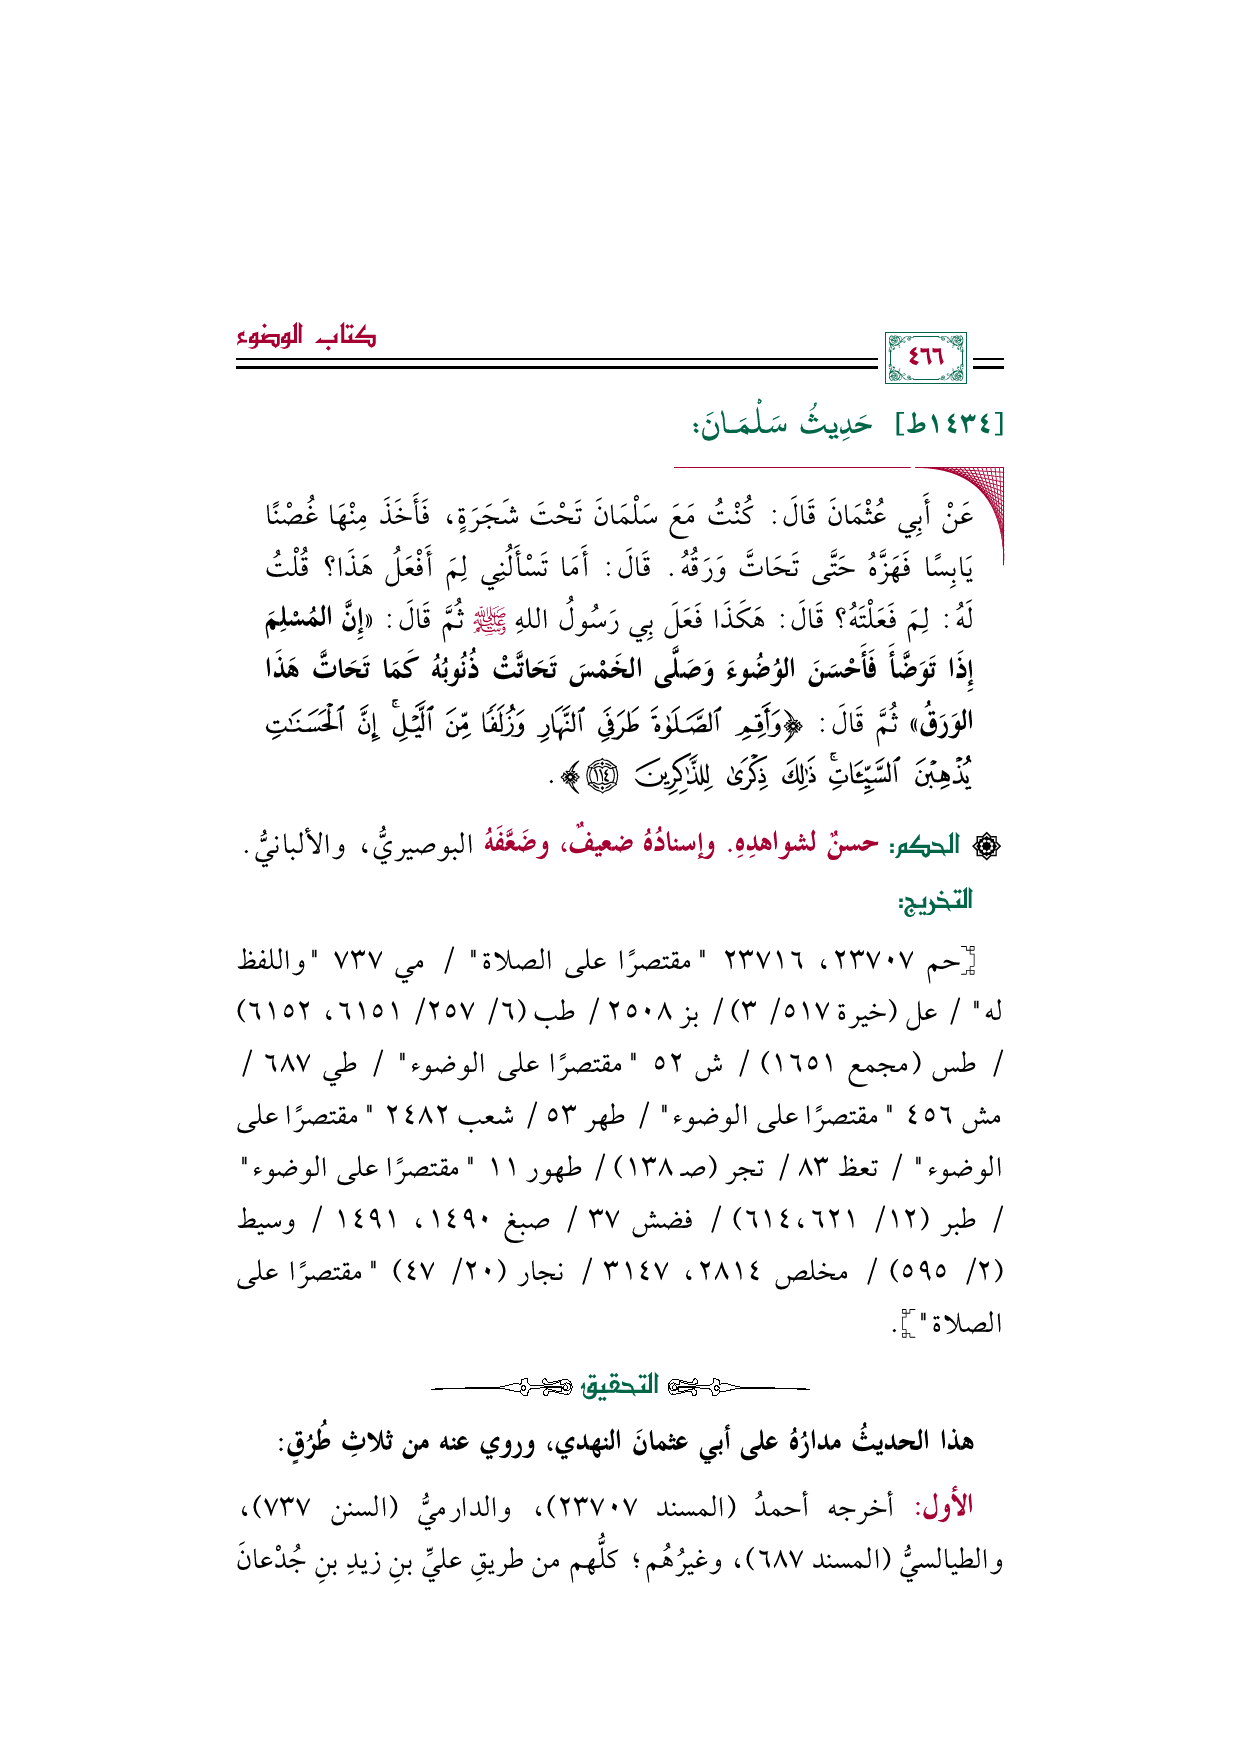 كتاب الوضوء
٤٦٦
[١٤٣٤ط] حَدِيثُ سَلْمَـانَ:
عَنْ أَبِي عُثْمَانَ قَالَ: كُنْتُ مَعَ سَلْمَانَ تَحْتَ شَجَرَةٍ، فَأَخَذَ مِنْهَا غُصْنًا
يَابِسًا فَهَزَّهُ حَتَّى تَحَاتَّ وَرَقُهُ. قَالَ: أَمَا تَسْأَلُنِي لِمَ أَفْعَلُ هَذَا؟ قُلْتُ
لَهُ: لِمَ فَعَلْتَهُ؟ قَالَ: هَكَذَا فَعَلَ بِي رَسُولُ اللهِ ﷺ ثُمَّ قَالَ: «إِنَّ المُسْلِمَ
إِذَا تَوَضَّأَ فَأَحْسَنَ الوُضُوءَ وَصَلَّى الخَمْسَ تَحَاتَّتْ ذُنُوبُهُ كَمَا تَحَاتَّ هَذَا
الوَرَقُ» ثُمَّ قَالَ: ﴿وَأَقِمِ ٱلصَّلَوٰةَ طَرَفَيِ ٱلنَّهَارِ وَزُلَفٗا مِّنَ ٱلَّيۡلِۚ إِنَّ ٱلۡحَسَنَٰتِ
يُذۡهِبۡنَ ٱلسَّيِّـَٔاتِۚ ذَٰلِكَ ذِكۡرَىٰ لِلذَّٰكِرِينَ ١١٤﴾.
الحكم: حسنٌ لشواهدِهِ. وإسنادُهُ ضعيفٌ، وضَعَّفَهُ البوصيريُّ، والألبانيُّ.
التخريج:
[حم ٢٣٧٠٧، ٢٣٧١٦ "مقتصرًا على الصلاة" / مي ٧٣٧ "واللفظ
له" / عل (خيرة ٥١٧/ ٣) / بز ٢٥٠٨ / طب (٦/ ٢٥٧/ ٦١٥١، ٦١٥٢)
/ طس (مجمع ١٦٥١) / ش ٥٢ "مقتصرًا على الوضوء" / طي ٦٨٧ /
مش ٤٥٦ "مقتصرًا على الوضوء" / طهر ٥٣ / شعب ٢٤٨٢ "مقتصرًا على
الوضوء" / تعظ ٨٣ / تجر (صـ ١٣٨) / طهور ١١ "مقتصرًا على الوضوء"
/ طبر (١٢/ ٦١٤،٦٢١) / فضش ٣٧ / صبغ ١٤٩٠، ١٤٩١ / وسيط
(٢/ ٥٩٥) / مخلص ٢٨١٤، ٣١٤٧ / نجار (٢٠/ ٤٧) "مقتصرًا على
الصلاة"].
التحقيق
هذا الحديثُ مدارُهُ على أبي عثمانَ النهدي، وروي عنه من ثلاثِ طُرُقٍ:
الأول: أخرجه أحمدُ (المسند ٢٣٧٠٧)، والدارميُّ (السنن ٧٣٧)،
والطيالسيُّ (المسند ٦٨٧)، وغيرُهُم؛ كلُّهم من طريقِ عليِّ بنِ زيدِ بنِ جُدْعانَ